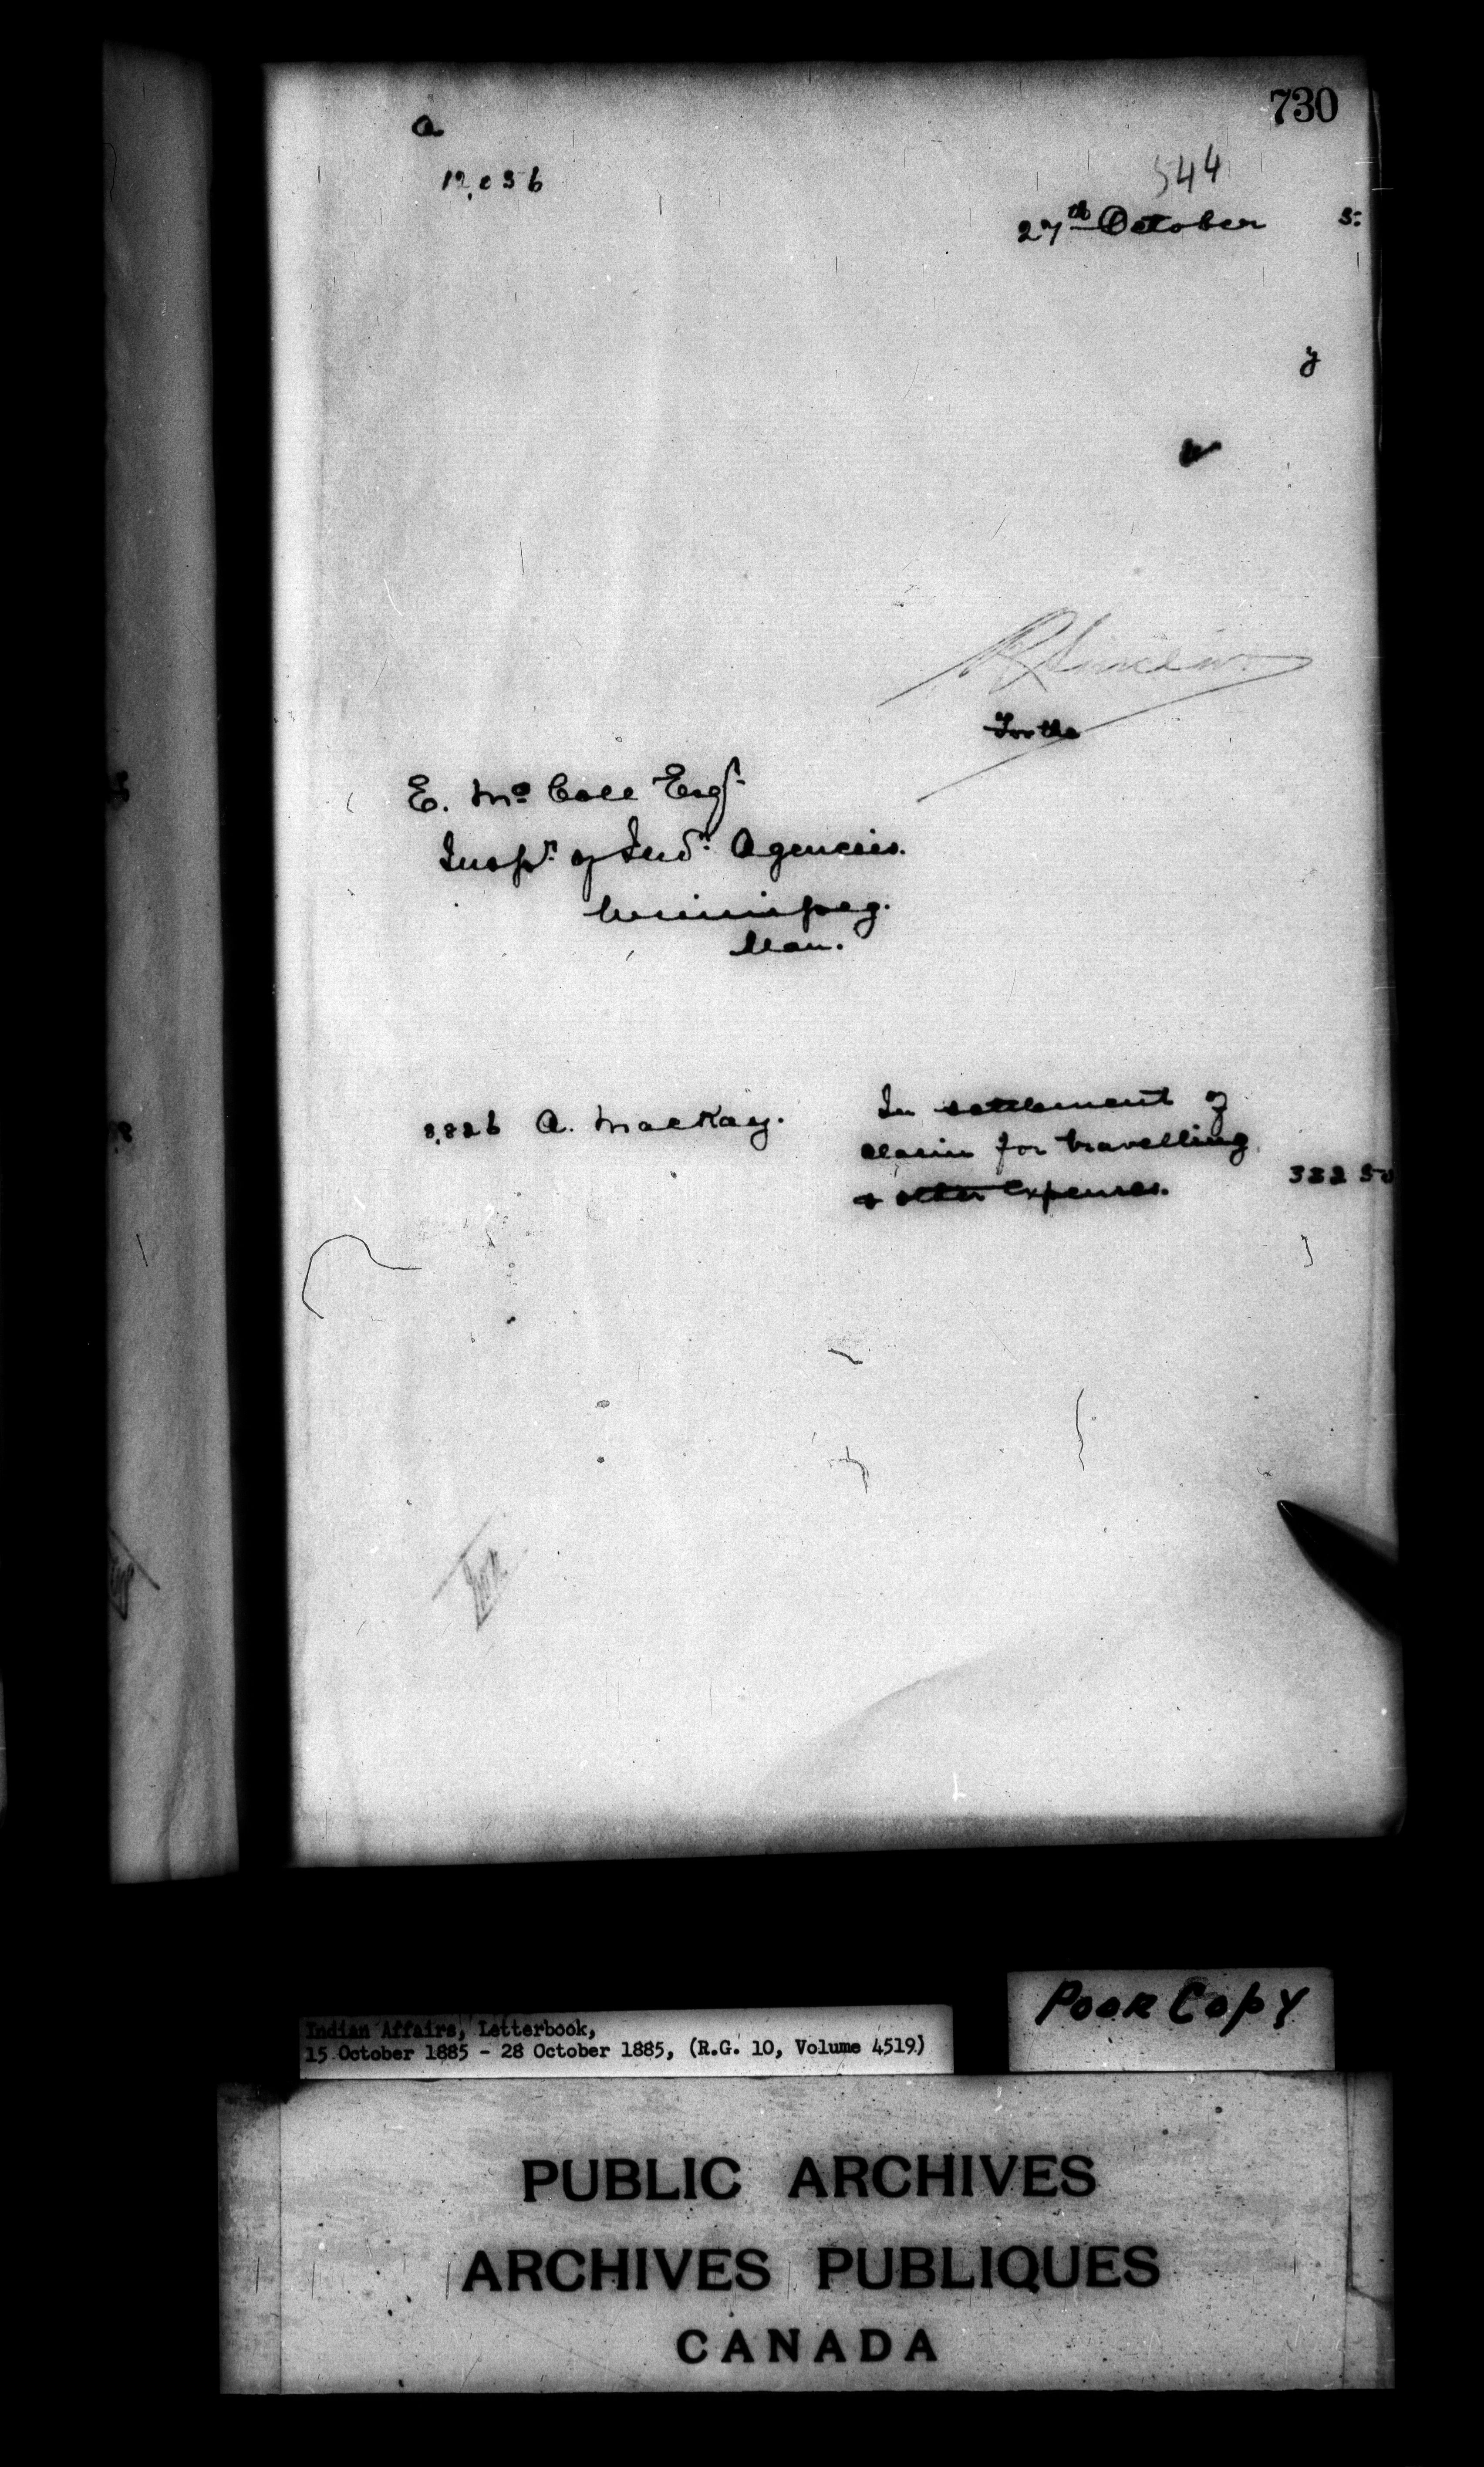 730
a
544
12,056
27th October 5.
y
R Sinclair
For the
E. McColl Esqr.
Inspr. of Ind. Agencies.
Winnipeg.
Man.
8,826 A. MacKay. In settlement of
claim for travelling
& other expenses. 332 50
Indian Affairs, Letterbook,
15 October 1885 - 28 October 1885, (R.G. 10, Volume 4519)
Poor Copy
PUBLIC ARCHIVES
ARCHIVES PUBLIQUES
CANADA